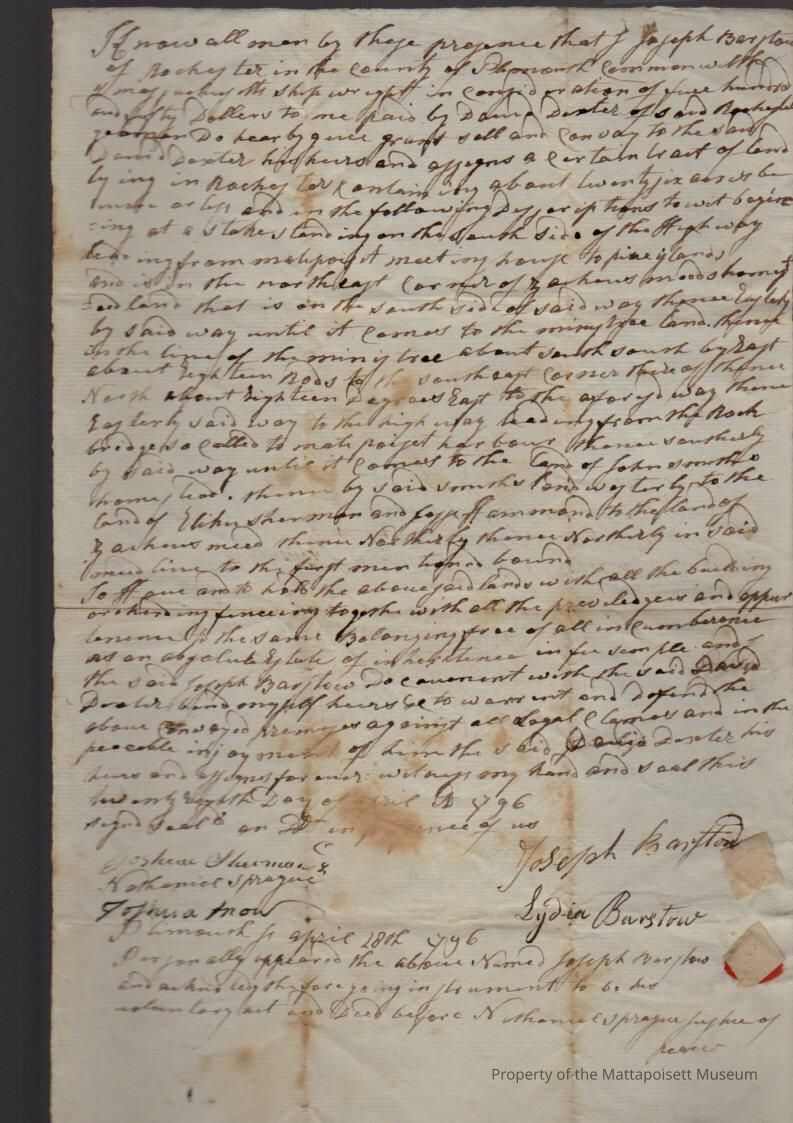 Know all men by these presence that I Joseph Barstow
of Rochester in the County of Plymouth Common welth
of massachusetts ship wright in consideration of five hundred
and fifty Dollers to me paid by David Dexter of said Rochester
yeoman Do hearby give grant sell and Convay to the said
David Dexter his heirs and assigns a Certain tract of land
lying in Rochester Containing about twentysix acres be
more or less and in the following Descriptions to wit begin
=ing at a stake standing on the south side of the High way
leading from matepoiset meeting house to pineylands
and is in the northeast Corner of Zacheus meeds
land that is on the south side of said way thence Easterly
by said way until it Comes to the land. thence
in the line of the about south south by East
about Eighteen Rods to the southeast Corner there of thence
North about Eighteen Degrees East to the aforesd way thence
Easterly said way to the high way leading from the Rock
bridge so Called to matepoiset harbour thence southerly
by said way until it Comes to the land of John smiths
homested. thence by said smiths land westerly to the
land of Elihu sherman and Hammond to the land of
Zacheus meed thence Northerly thence Northerly in said
meed line to the first mentioned bound
To Have and to hold the above said lands with all the
fenceing together with all the previledges and appur
tenence to the same Belonging free of all incumberence
as an absolute Estate of inheritence in fee simple and I
the said Joseph Barstow Do covenent with the said David
Dexter bind myself heirs &c to warrent and defend the
above Convayed premises against all Legal Clames and in the
peacable injoyment of him the said David Dexter his
heirs and assignes for ever: witness my hand and seal this
twenty Eighth Day of april AD 1796
signd seald an Dd in presence of us
Sherman
Nathaniel Sprague
Joseph Barstow
Joshua Snow
Lydia Barstow
Plimouth Ss april 28th 1796
Personally appeared the above Named Joseph Barstow
and acknoledg the fore going instrument to be his
voluntary act and Deed before Nathaniel sprague justice of
peace
Property of the Mattapoisett Museum